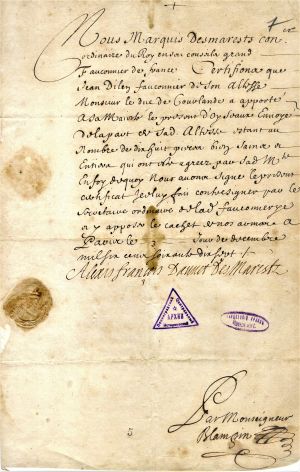 Nous Marquis Desmarests con er
ordinaire du Roy en ses conseils grand
Fauconnier de france Certifions que
Jean Dilen fauconnier de Son Altesse
Monsieur le duc de Courlande a apporté
A Sa Majesté le present d'oyseaux Envoyé
De la part de Sad. Altesse estant au
Nombre de dix huit bien Sains et
Entiers qui ont esté agreez par Sad. M.té
En foy de quoy Nous avons signé le present
certificat Jceluy fait contresigner par le
Secretaire ordinaire de lad. fauconnerye
et y apposer le cachet de nos armes A
Paris le Jour de decembre
mil six cens soixante dix sept
Alexis francois Dauvet Des Marestz
АРХИВ
Par Monseigneur